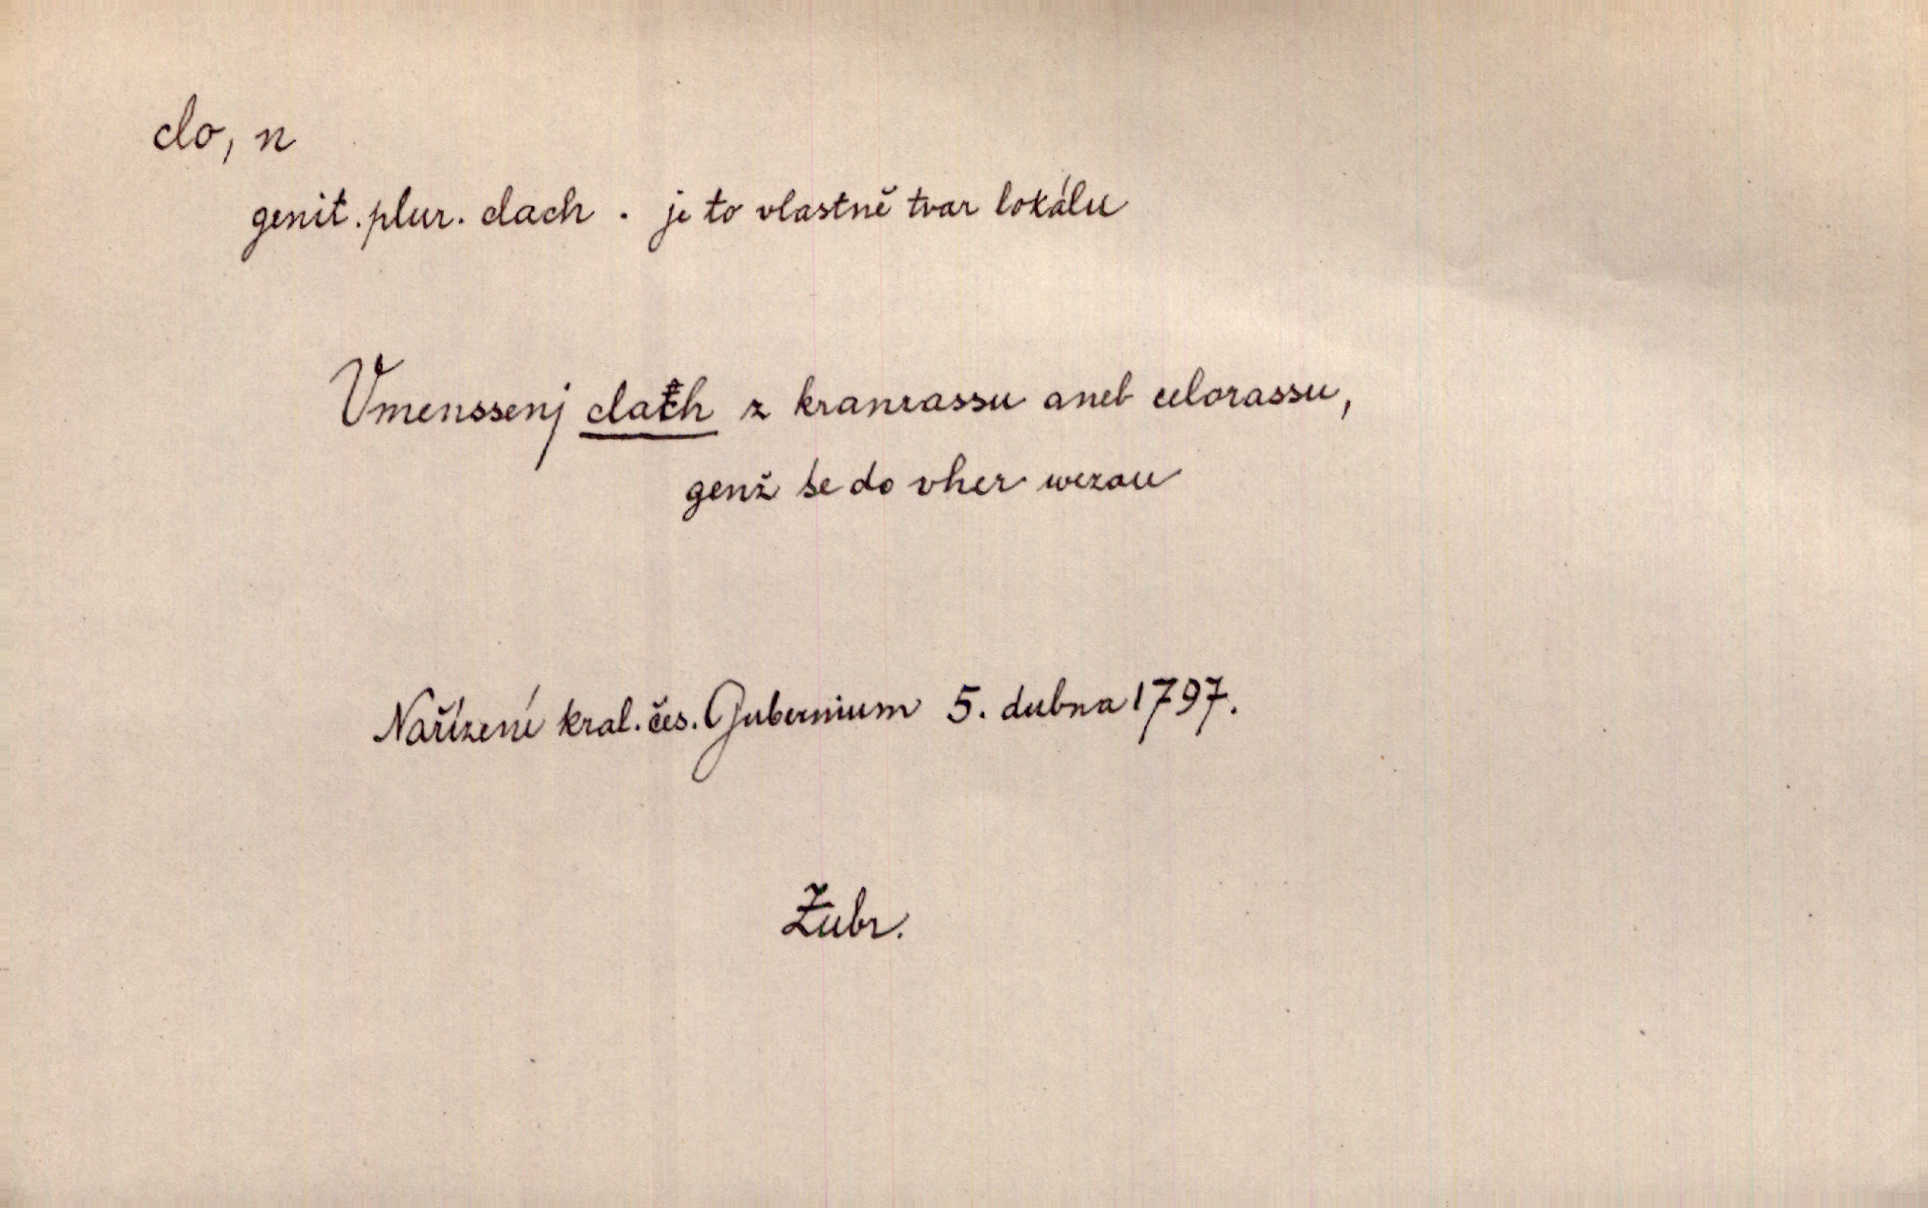 clo, n
genit. plur. clach. je to vlastně tvar lokálu
Vmenssenj clach z kranrassu aneb celorassu,
genž se do vher wezau
Nařízení kral. čes. Gubernium 5. dubna 1797.
Žubr.